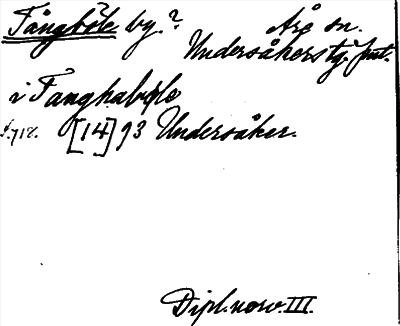 Tångböle by.? Åre sn.
Undersåkers tg. Jmt.
i Fanghabøle
s. 718. [14]93 Undersåker.
Dipl. norv. III.